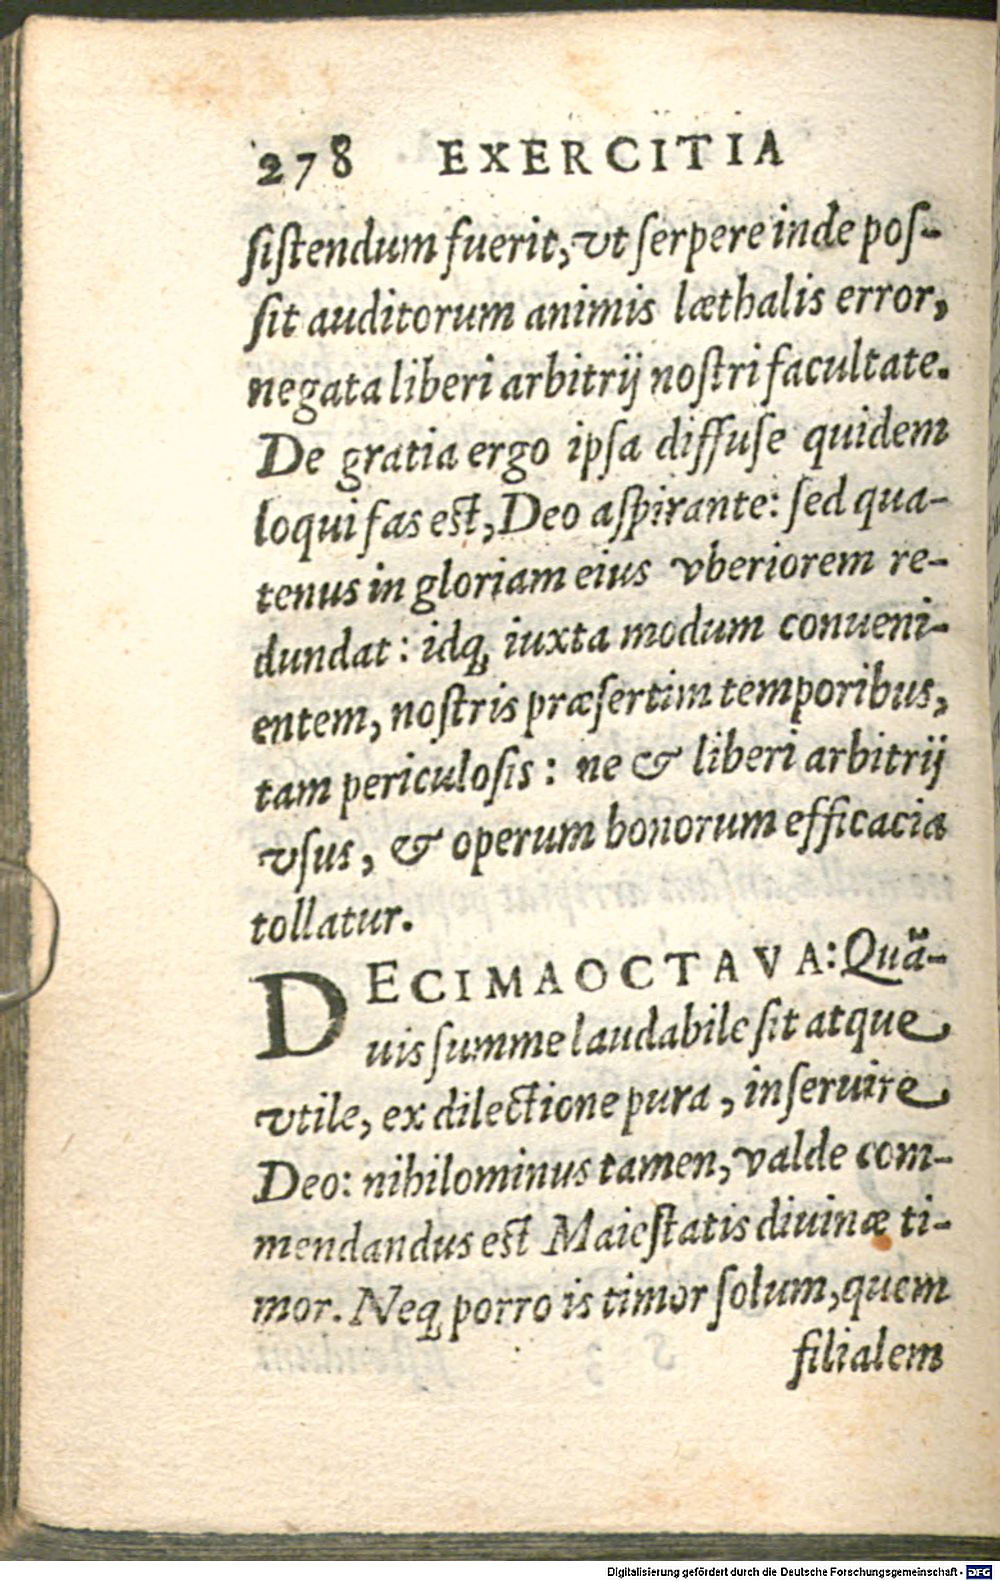 278 EXERCITIA
sistendum fuerit, vt serpere inde pos-
sit auditorum animis læthalis error,
negata liberi arbitrij nostri facultate.
De gratia ergo ipsa diffuse quidem
loqui fas est, Deo aspirante: sed qua-
tenus in gloriam eius vberiorem re-
dundat: idq; iuxta modum conueni-
entem, nostris præsertim temporibus,
tam periculosis: ne & liberi arbitrij
vsus, & operum bonorum efficacia
tollatur.
DECIMAOCTAVA: Quã-
uis summe laudabile sit atque
vtile, ex dilectione pura, inseruire
Deo: nihilominus tamen, valde com-
mendandus est Maiestatis diuinæ ti-
mor. Neq; porro is timor solum, quem
filialem
Digitalisierung gefördert durch die Deutsche Forschungsgemeinschaft - DFG